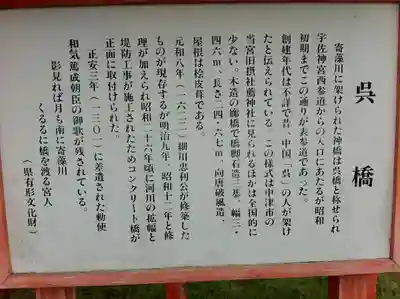 呉橋
寄藻川に架けられた神橋は呉橋と称せられ
宇佐神宮西参道からの入口にあたるが昭和
初期までこの通りが表参道であった。
創建年代は不詳で昔、中国「呉」の人が架け
たと伝えられている。この様式は中津市の
当宮旧摂社薦神社に見られるほかは全国的に
少ない。木造の廊橋で橋脚石造三基、幅三・
四六m、長さ二四・六七m、向唐破風造、
屋根は桧皮葺である。
元和八年(一六二二)細川忠利公が修築した
ものが現存するが明治九年、昭和十二年と修
理が加えられ昭和二十六年頃に河川の拡幅と
堤防工事が施こされたためコンクリート橋が
正面に取付けられた。
正安三年(一三〇一)に差遣された勅使
和気篤成朝臣の御歌が残されている。
影見れば月も南に寄藻川
くるるに橋を渡る宮人
(県有形文化財)